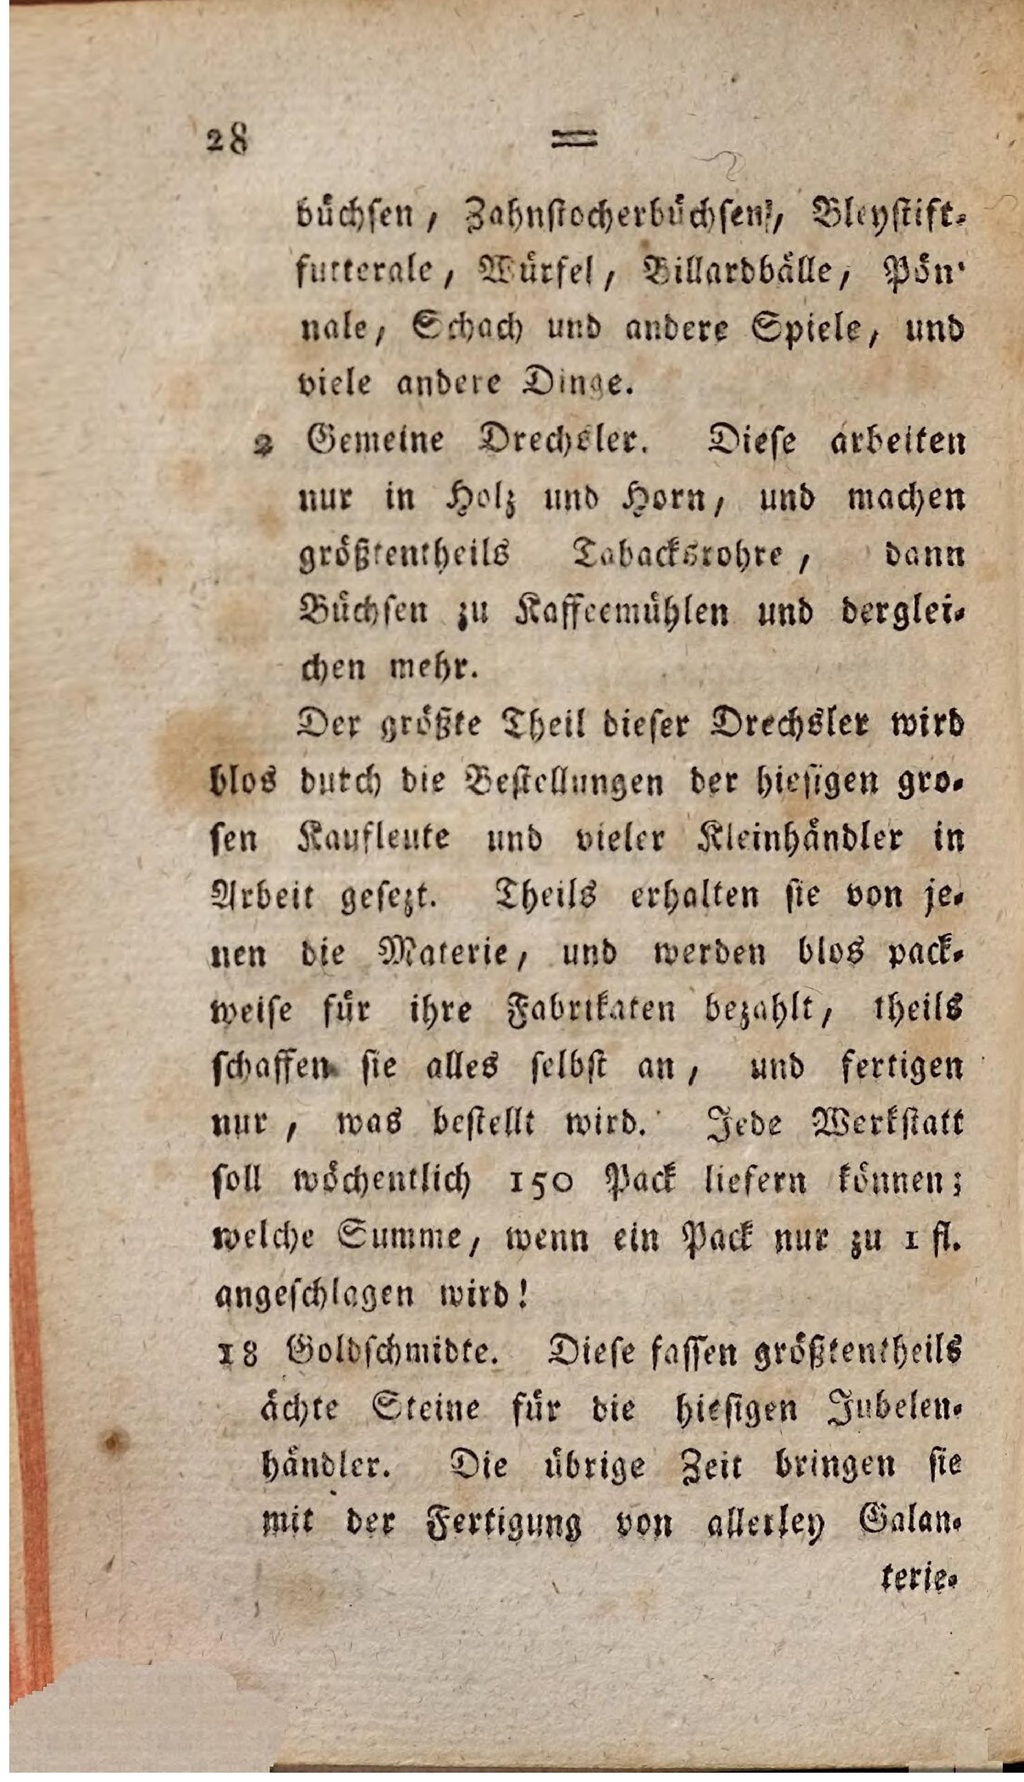 28 =
büchsen, Zahnstocherbüchsen, Bleystift-
futterale, Würfel, Billardbälle, Pön-
nale, Schach und andere Spiele, und
viele andere Dinge.
2 Gemeine Drechsler. Diese arbeiten
nur in Holz und Horn, und machen
größtentheils Tabacksrohre, dann
Büchsen zu Kaffeemühlen und derglei-
chen mehr.
Der größte Theil dieser Drechsler wird
blos durch die Bestellungen der hiesigen gro-
sen Kaufleute und vieler Kleinhändler in
Arbeit gesezt. Theils erhalten sie von je-
nen die Materie, und werden blos pack-
weise für ihre Fabrikaten bezahlt, theils
schaffen sie alles selbst an, und fertigen
nur, was bestellt wird. Jede Werkstatt
soll wöchentlich 150 Pack liefern können;
welche Summe, wenn ein Pack nur zu 1 fl.
angeschlagen wird!
18 Goldschmidte. Diese fassen größtentheils
ächte Steine für die hiesigen Jubelen-
händler. Die übrige Zeit bringen sie
mit der Fertigung von allerley Galan-
terie-